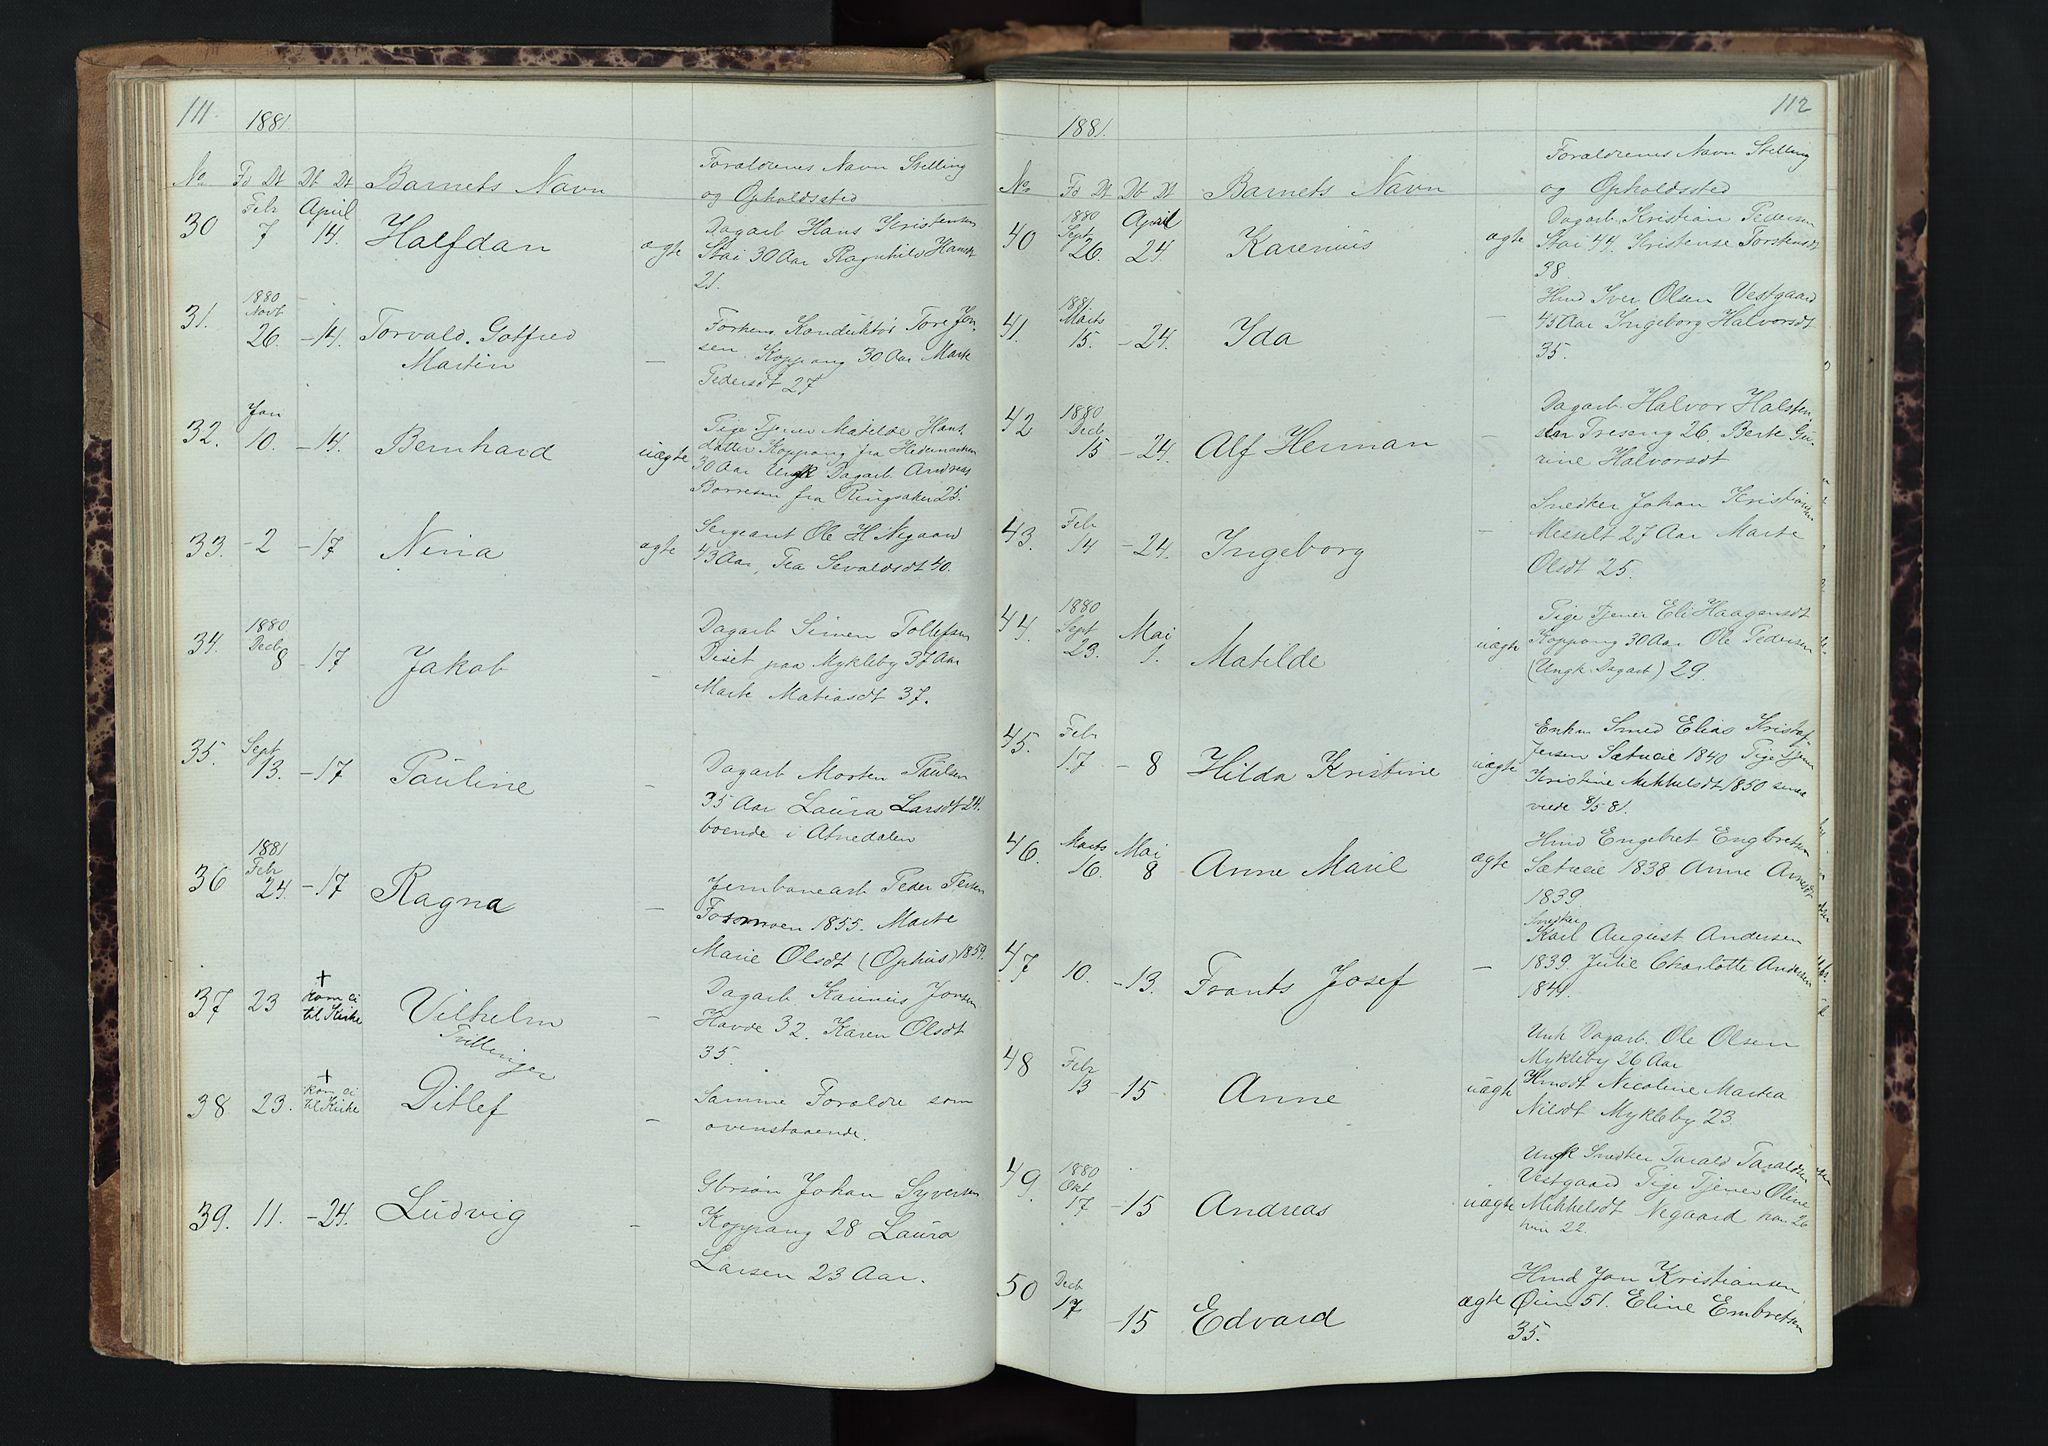 111.
1881
No Fd Dt Db Dt Barnets Navn
Forældrenes Navn Stilling
og Opholdssted
30 Febr 7 April 14. Halfdan ægte
Dagarb Hans Kristensen
Stai 30 Aar Ragnhild Hansdt
21.
31. 1880 Novb 26. -14. Torvald. Gotfred
Martin —
Konduktør Tore Jon-
sen Koppang 30 Aar Marte
Pedersdt 27
32. Jan 10. -14. Bernhard uægte
Pige Tjener Matilde Hans
datter Koppang fra Hedemarken
30 Aar Ungk Dagarb Andreas
Borresen fra Ringsaker 25.
33. -2 -17 Nina ægte
Sergeant Ole H Negaard
43 Aar, Sevaldsdt 40.
34. 1880 Decb 8 -17 Jakob —
Dagarb Simen Tollefsen
Diset paa Mykleby 37 Aar
Marte Matiasdt 37.
35. Sept 13. -17 Pauline —
Dagarb Morten Paulsen
35 Aar Laura Larsdt 24.
boende i Atnedalen
36 1881 Febr 24. -17 Ragna —
Jernbanearb Peder Persen
Fossmoen 1855. Marte
Marie Olsdt (Ophus) 1859.
37 23 + kom ei
til Kirke Vilhelm —
Tvillinger
Dagarb Jonsen
Havde 32. Karen Olsdt
35.
38 23. + kom ei
til Kirke Ditlef —
Samme Forældre som
ovenstaaende.
39. 11. -24. Ludvig —
Gbrsøn Johan Syversen
Koppang 28 Laura
Larsen 23 Aar.
112
1881.
No. Fd Dt Db Dt Barnets Navn
Forældrenes Navn Stilling
og Opholdssted
40 1880 Sept 26. April 24. Karenius ægte
Dagarb Kristian Pedersen
Stai 44. Kristense Torstensdt
38.
41. 1881 Marts 15. -24. Ida —
Hmd Iver Olsen Vestgaard
45 Aar Ingeborg Halvorsdt
35.
42 1880 Decb 15 -24. Alf Herman —
Dagarb Halvor Halsten
sen Treseng 26. Berte Gu-
rine Halvorsdt
43. Febr 14 -24. Ingeborg —
Snedker Johan Kristiansen
Messelt 27 Aar Marte
Olsdt 25.
44. 1880 Sept 23. Mai 1. Matilde uægte
Pige Tjener Eli Haagensdt
Koppang 30 Aar Ole Pedersen
(Ungk Dagarb) 29.
45. Febr 17 -8 Hilda Kristine uægte
Enkm Smed Elias Kristof-
fersen Sætueie 1840 Pige Tjener
Kristine Mikkelsdt 1850 senere
viede 8/5 81.
46. Marts 16. Mai 8 Anne Marie ægte
Hmd Engebret Engbretsen
Sætueie 1838 Anne Arnesdt
1839.
47 10. -13. Frants Josef —
Snedker
Karl August Andersen
1839. Julie Charlotte Andersen
1844.
48 Febr 13 -15 Anne uægte
Unk Dagarb. Ole Olsen
Mykleby 26 Aar
Hmsdt Nicoline Martea
Nilsdt Mykleby 23.
49. 1880 Okt 17 -15 Andreas uægte
Ungk Snedker Tarald Taraldsen
Vestgaard Pige Tjener Oline
Mikkelsdt Negaard han 26
hun 22.
50 Decb 17 -15 Edvard ægte
Hmd Jon Kristiansen
Øien 51. Eline Embretsen
35.